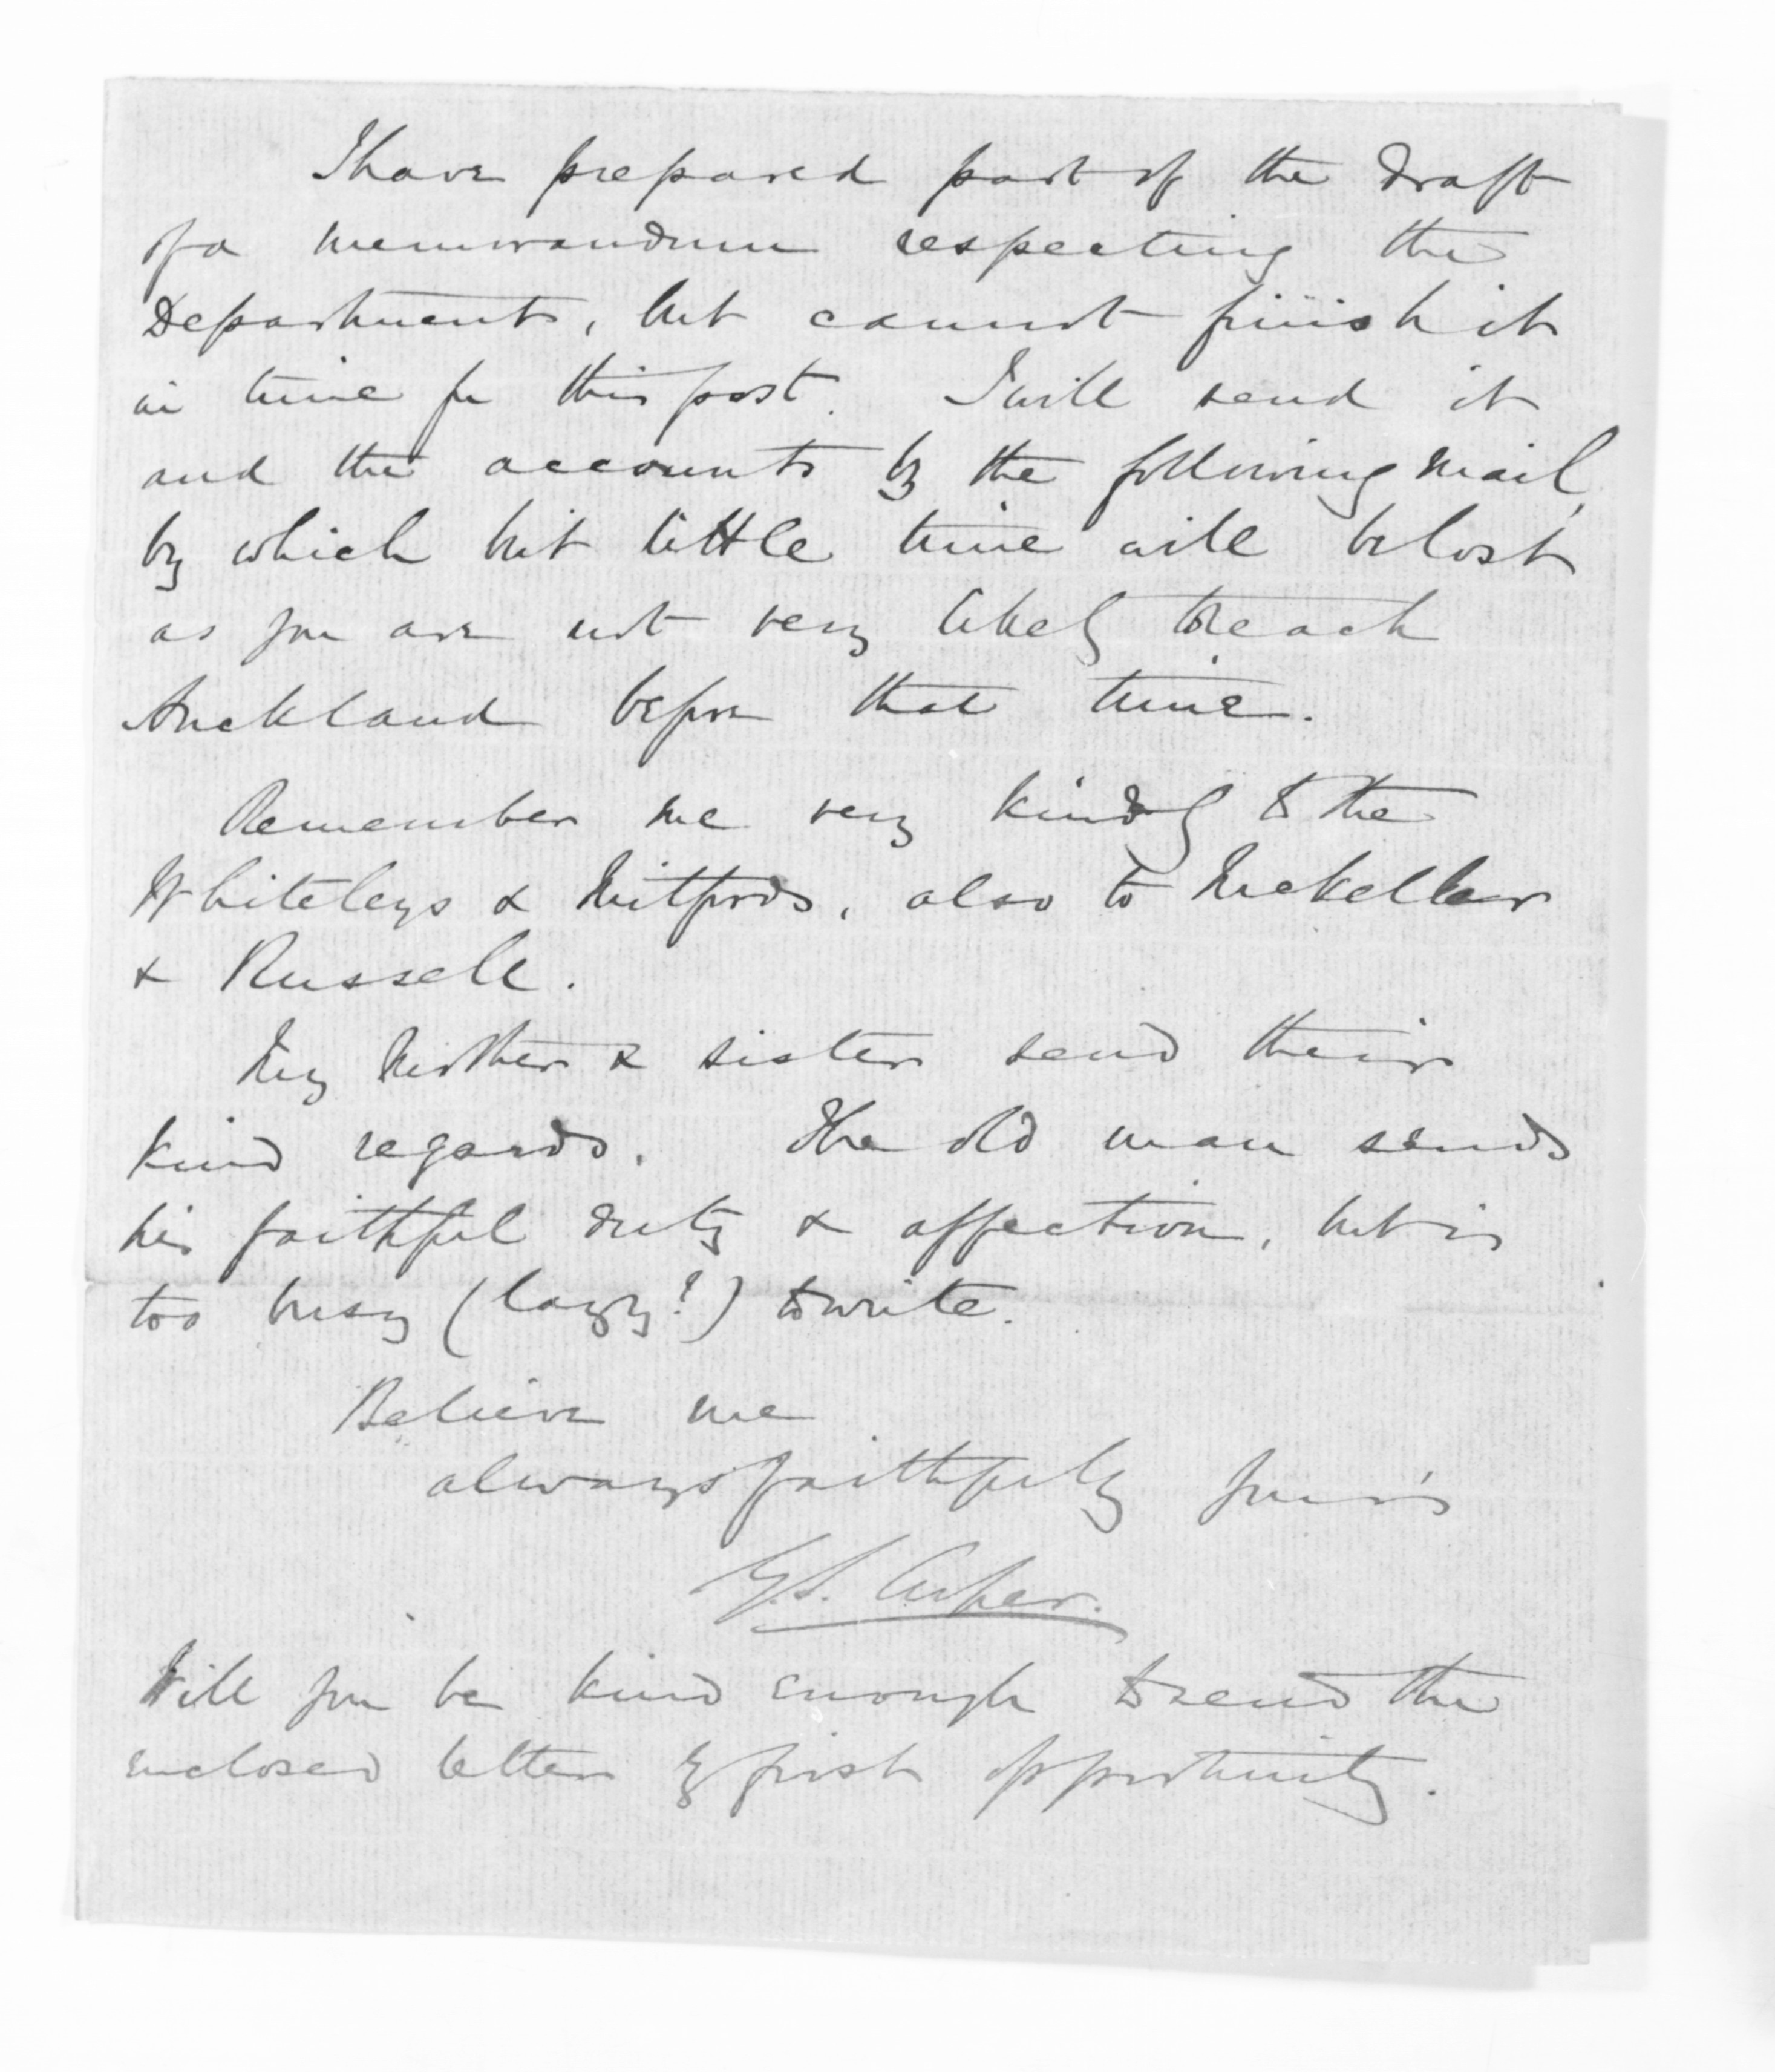 I have prepared part of the draft
of a memorandum respecting the
Department, but cannot finish it
in time for this post. I will send it
and the accounts by the following mail,
by which but little time will be lost
as you are not very likely to reach
Auckland before that time.
Remember me very kindly to the
Whiteleys & Mitfords, also to McKellar
& Russell.
My Mother & sister send their
kind regards. The old man sends
his faithful duty & affection, but is
too busy (lazy?) to write.
Believe me
always faithfully your's
G.S. Cooper.
Will you be kind enough to send the
enclosed letter by first opportunity.